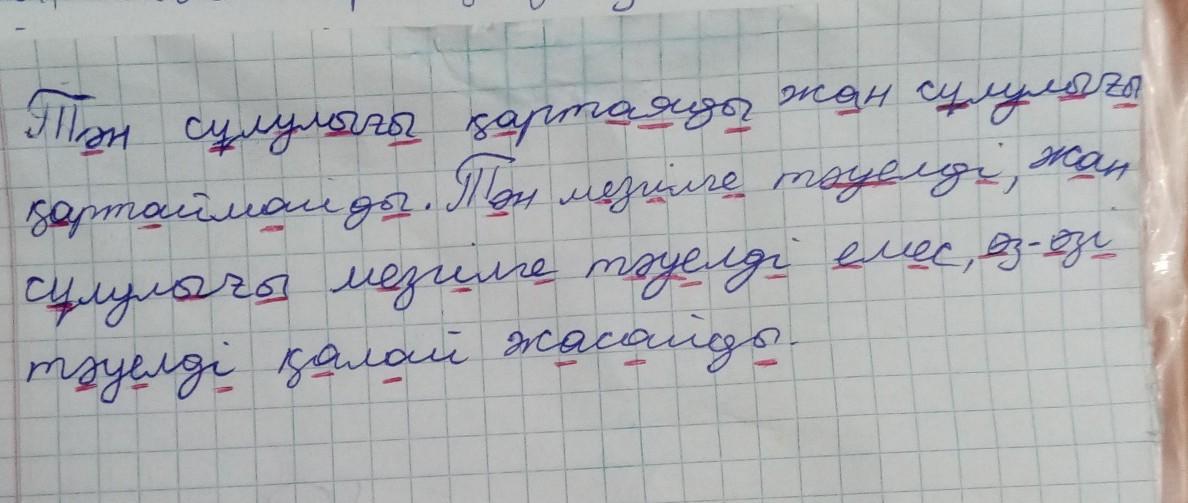 Тән сұлулығы қартаяды жан сұлулығы
қартаймайды. Тән мезгілге тәуелді, жан
сұлулығы мезгілге тәуелді емес, өз-өзі
тәуелді қалай жасайды.